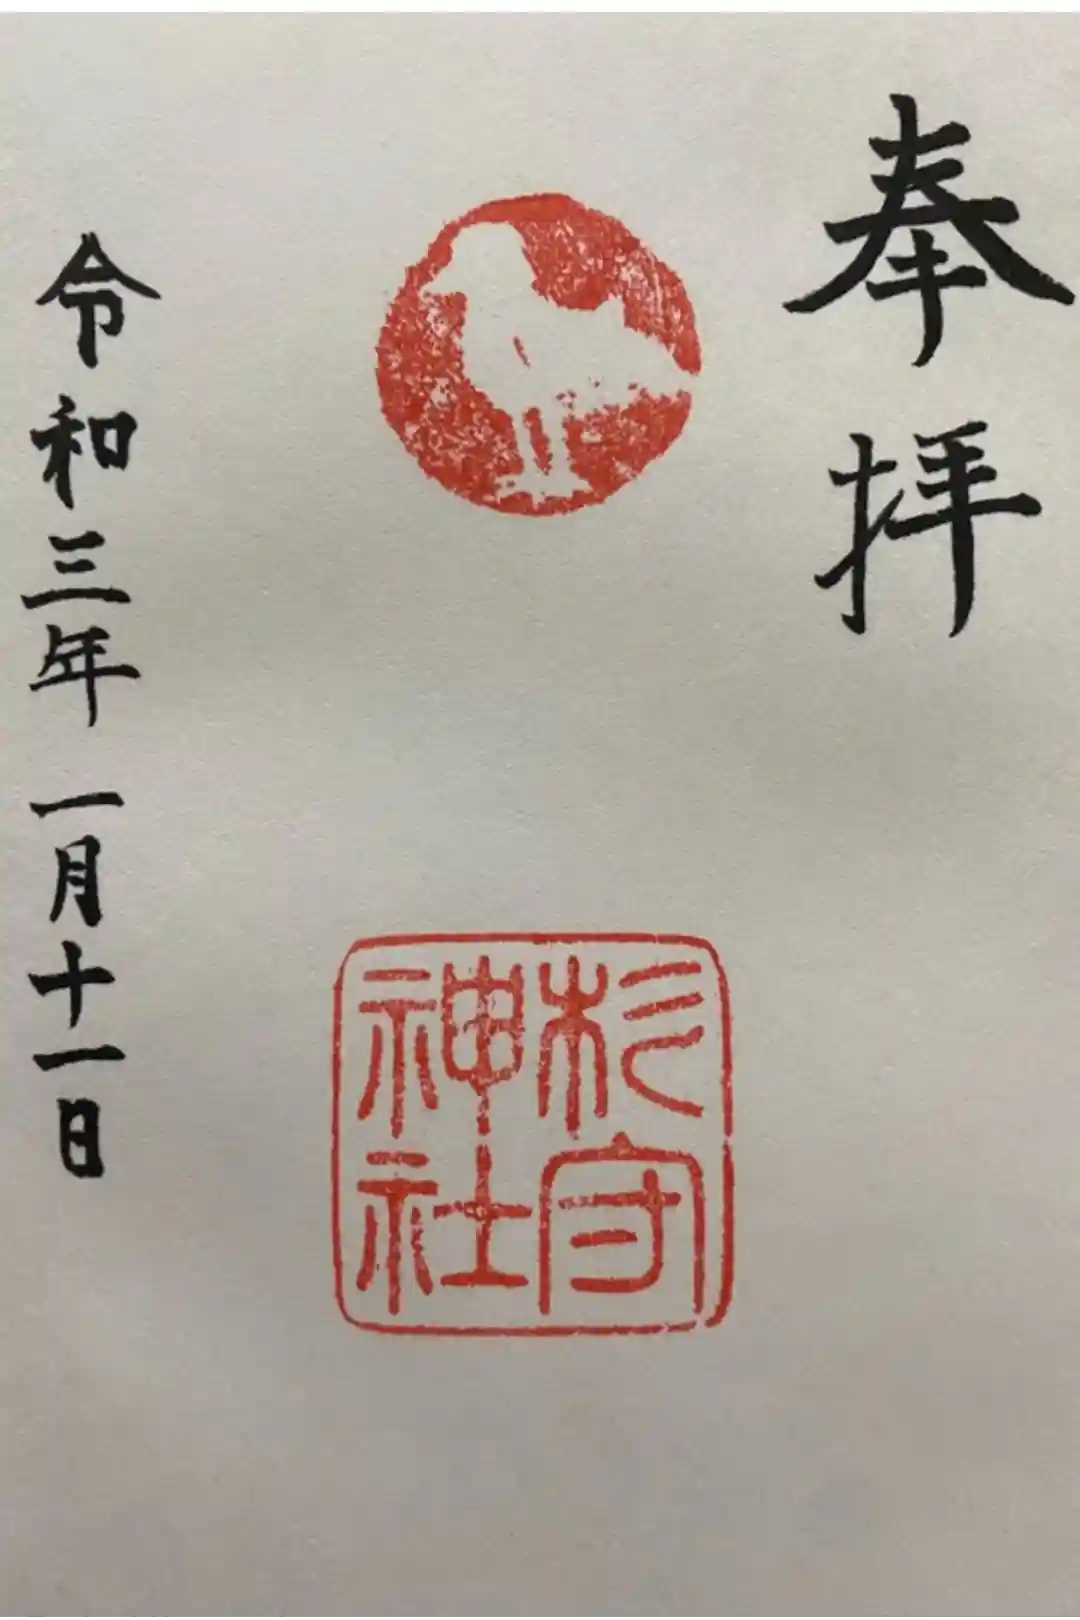 奉拝
杉守
神社
令和三年 一月十一日